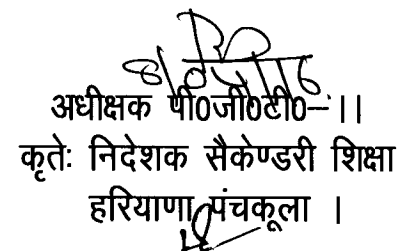 अधीक्षक पी0जी0टी0–।।
कृतेः निदेशक सैकेण्डरी शिक्षा
हरियाणा पंचकूला ।